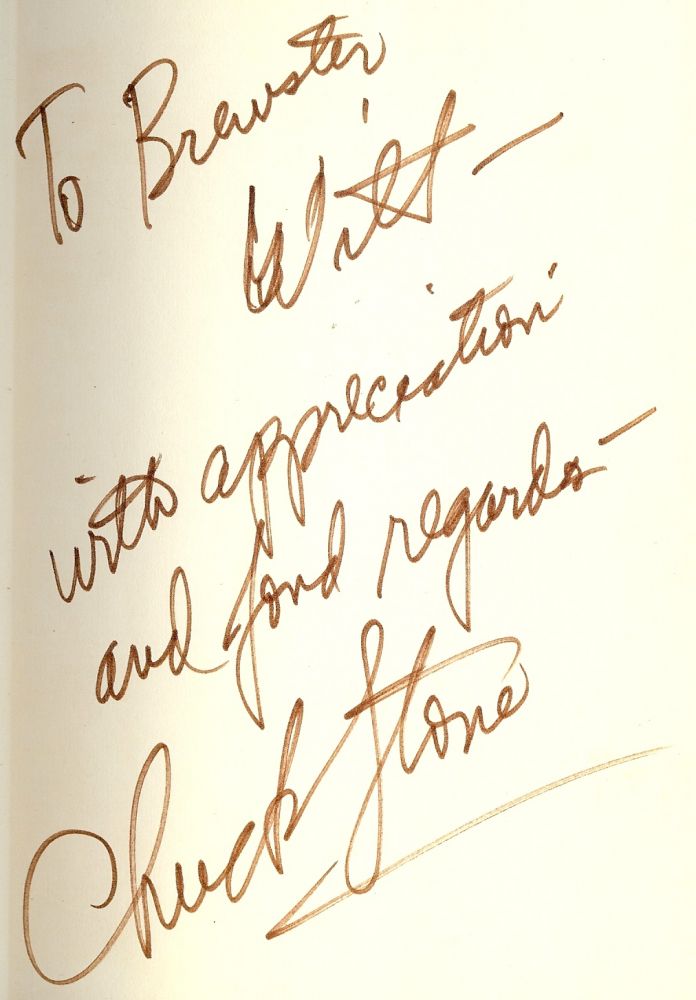 To Brewster
Witt —
with appreciation
and fond regards —
Chuck Stone